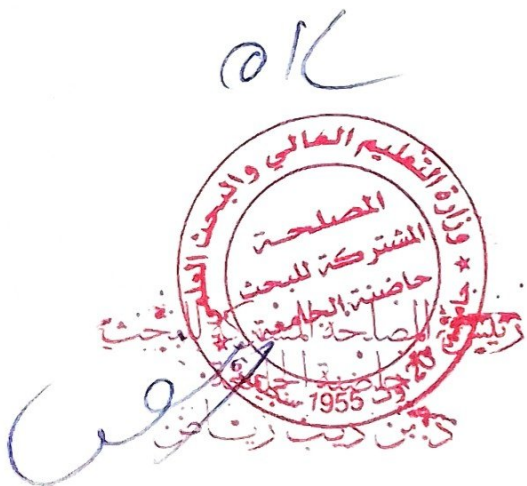 OK
وزارة التعليم العالي والبحث العلمي
المصلحة
المشتركة للبحث
حاضنة الجامعة
جامعة 20 أوت 1955 سكيكدة
رئيس المصلحة المشتركة للبحث
حاضنة الجامعة